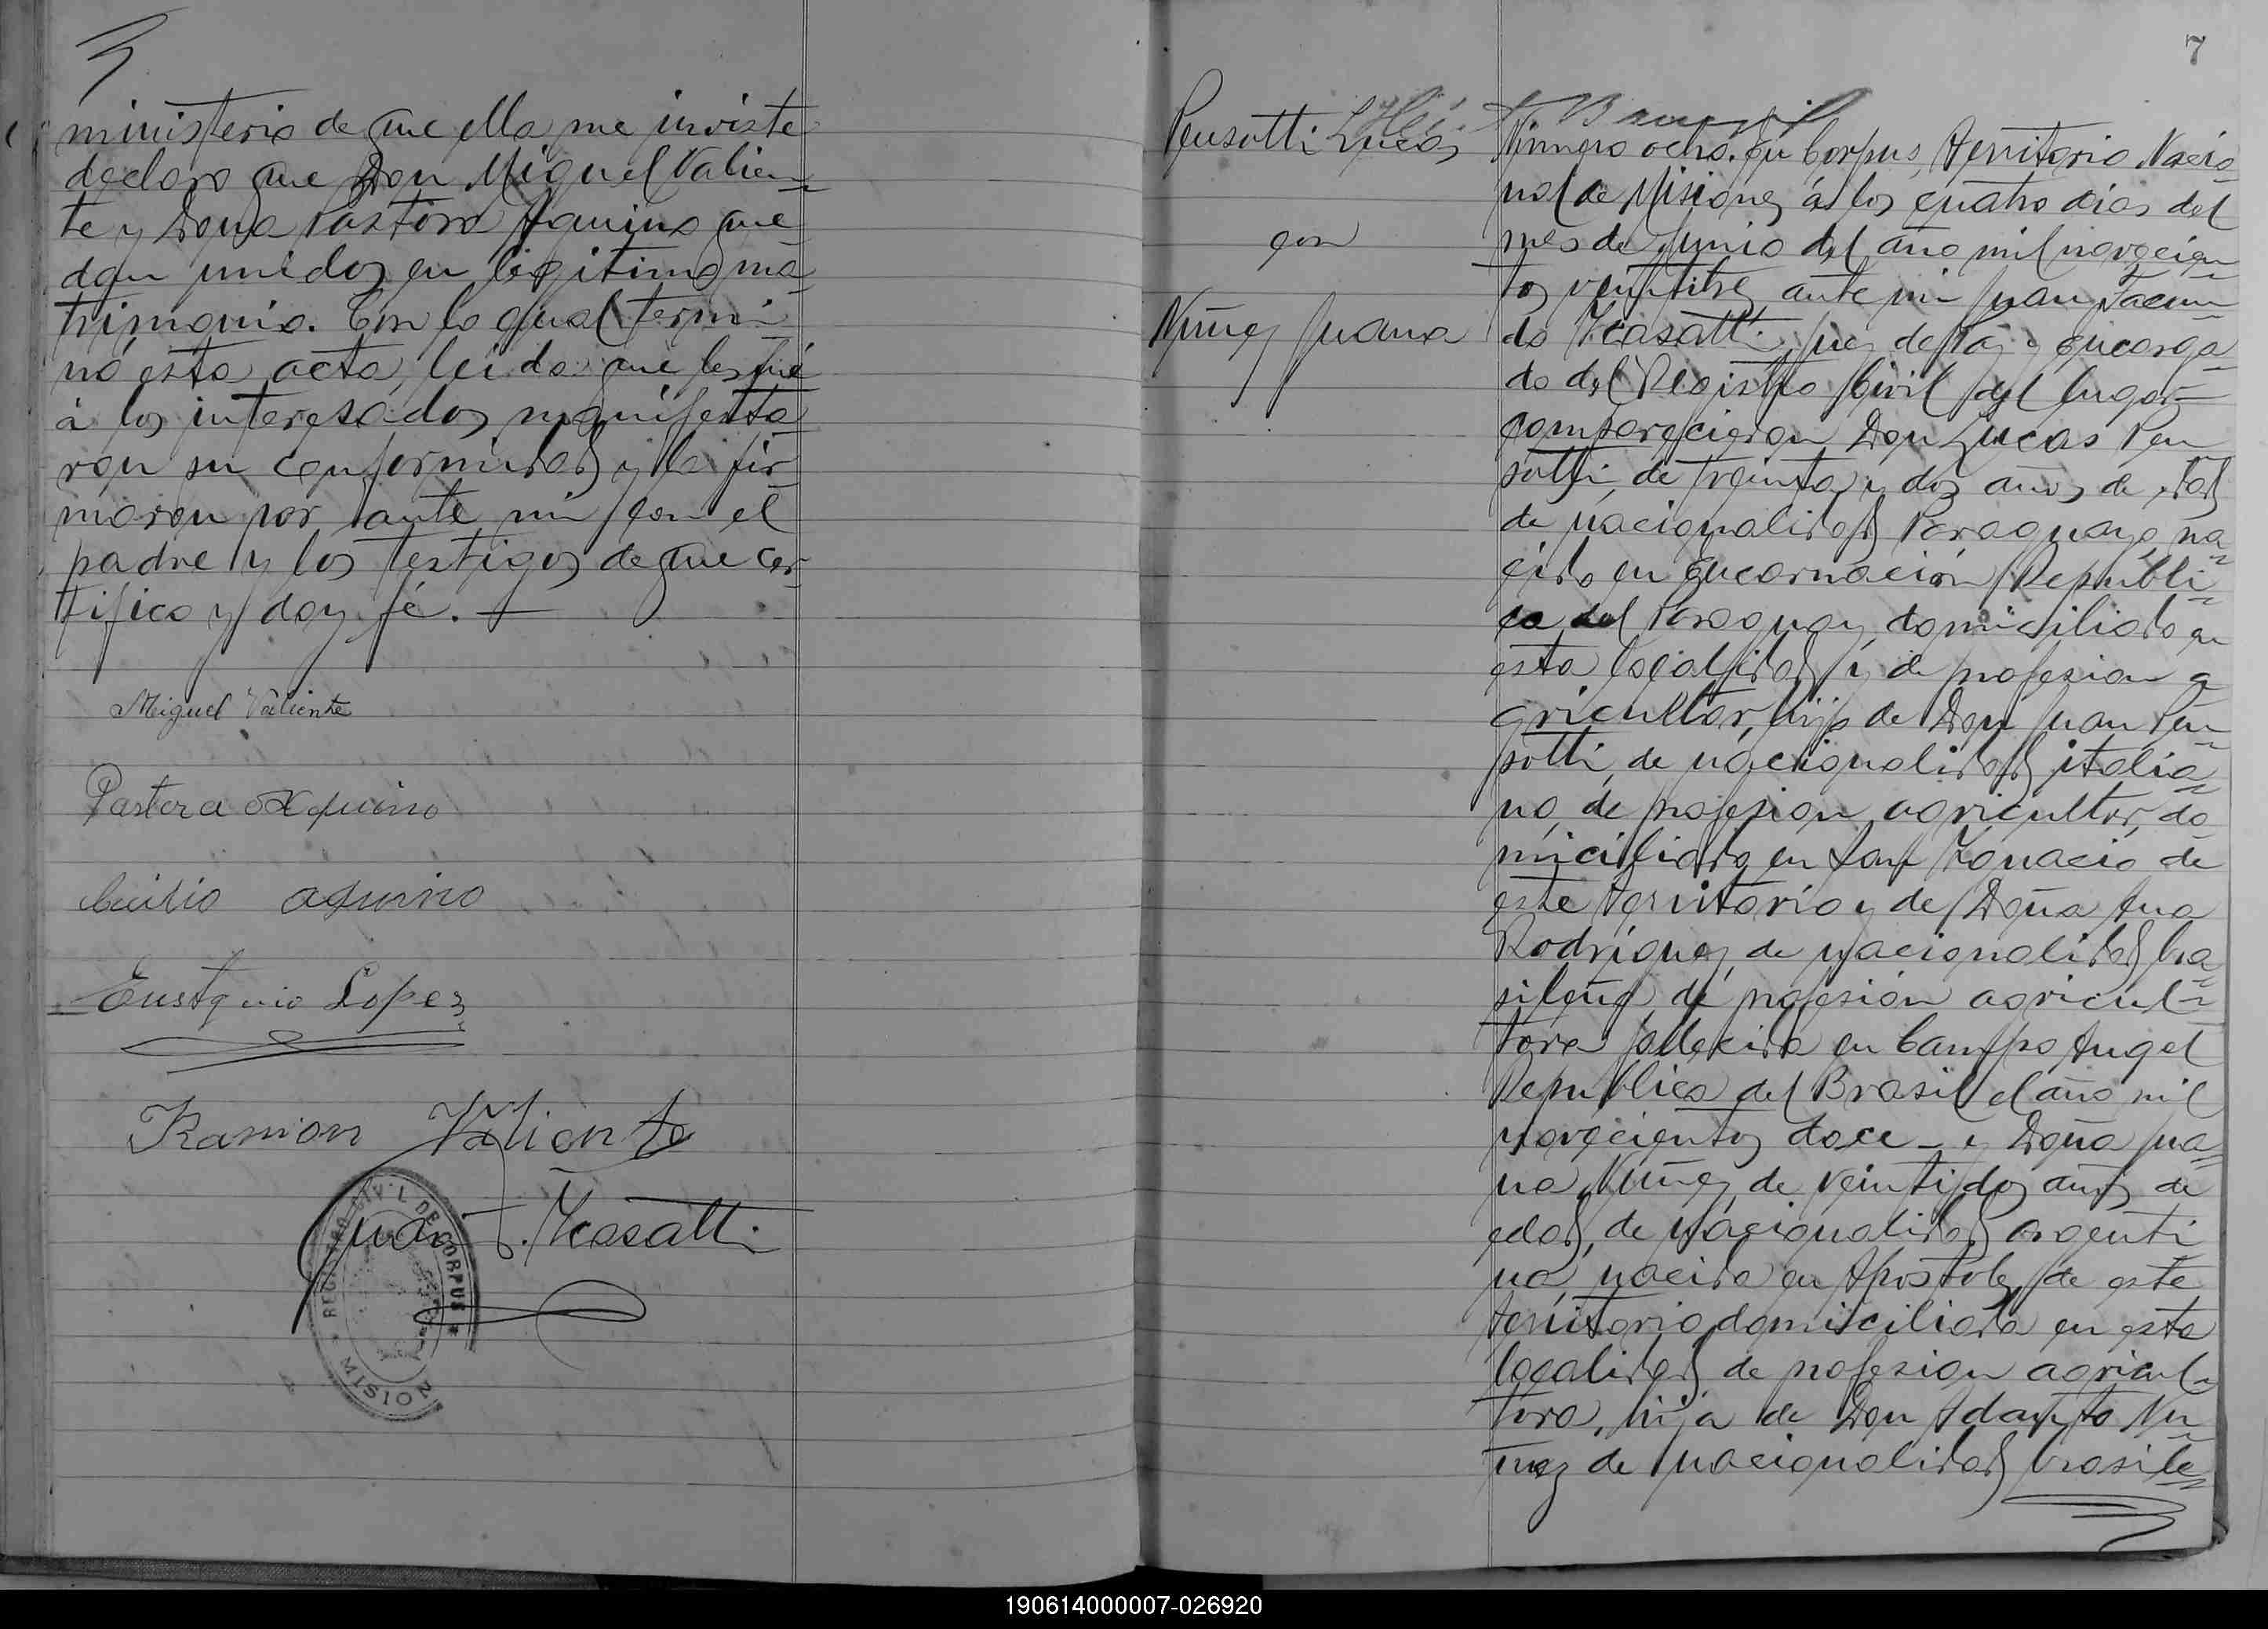 ministerio de que ella me inviste
declaro que Don Miguel Valien-
te y Doña Pastora Aquino que
dan unidos en legitimo ma
trimonio. Con lo qual termi
nó esta acta, leida que les fué
á los interesados manifesta
ron su conformidad y la fir
maron por ante mi con el
padre y los testigos de que cer-
tifico y doy fé. —
Miguel Valiente
Pastora Aquino
Aquino
Eustaquio Lopez
Ramon Valiente
Juan F.
REGISTRO CIVIL DE CORPUS * MISIONES *
7
Pensotti Lucas
con
Nuñez Juana
Número ocho. En Corpus, Territorio Nacio
nal de Misiones á los cuatro dias del
mes de Junio del año mil novecien
tos veintitres, ante mi Juan Facun
do Juez de Paz y encarga
do del Registro Civil del lugar—
comparecieron Don Lucas Pen
sotti, de treinta y dos años de edad
de nacionalidad Paraguaya, na
cido en Encarnación Republi
ca del Paraguay, domiciliado en
esta localidad y de profesion a
gricultor, hijo de Don Juan Pen
sotti, de nacionalidad italia
na, de profesion agricultor, do
miciliado en San Ignacio de
este Territorio y de Doña Ana
Rodriguez, de nacionalidad bra
sileña, de profesión agricul-
tora fallecida en Campo Angel
Republica del Brasil el año mil
novecientos doce — y Doña Jua-
na Nuñez, de veintidos años de
edad, de nacionalidad argenti
na, nacida en Apostoles, de este
territorio domiciliada en esta
localidad, de profesion agricul-
tora, hija de Don Adanto Nu
ñez de nacionalidad brasile